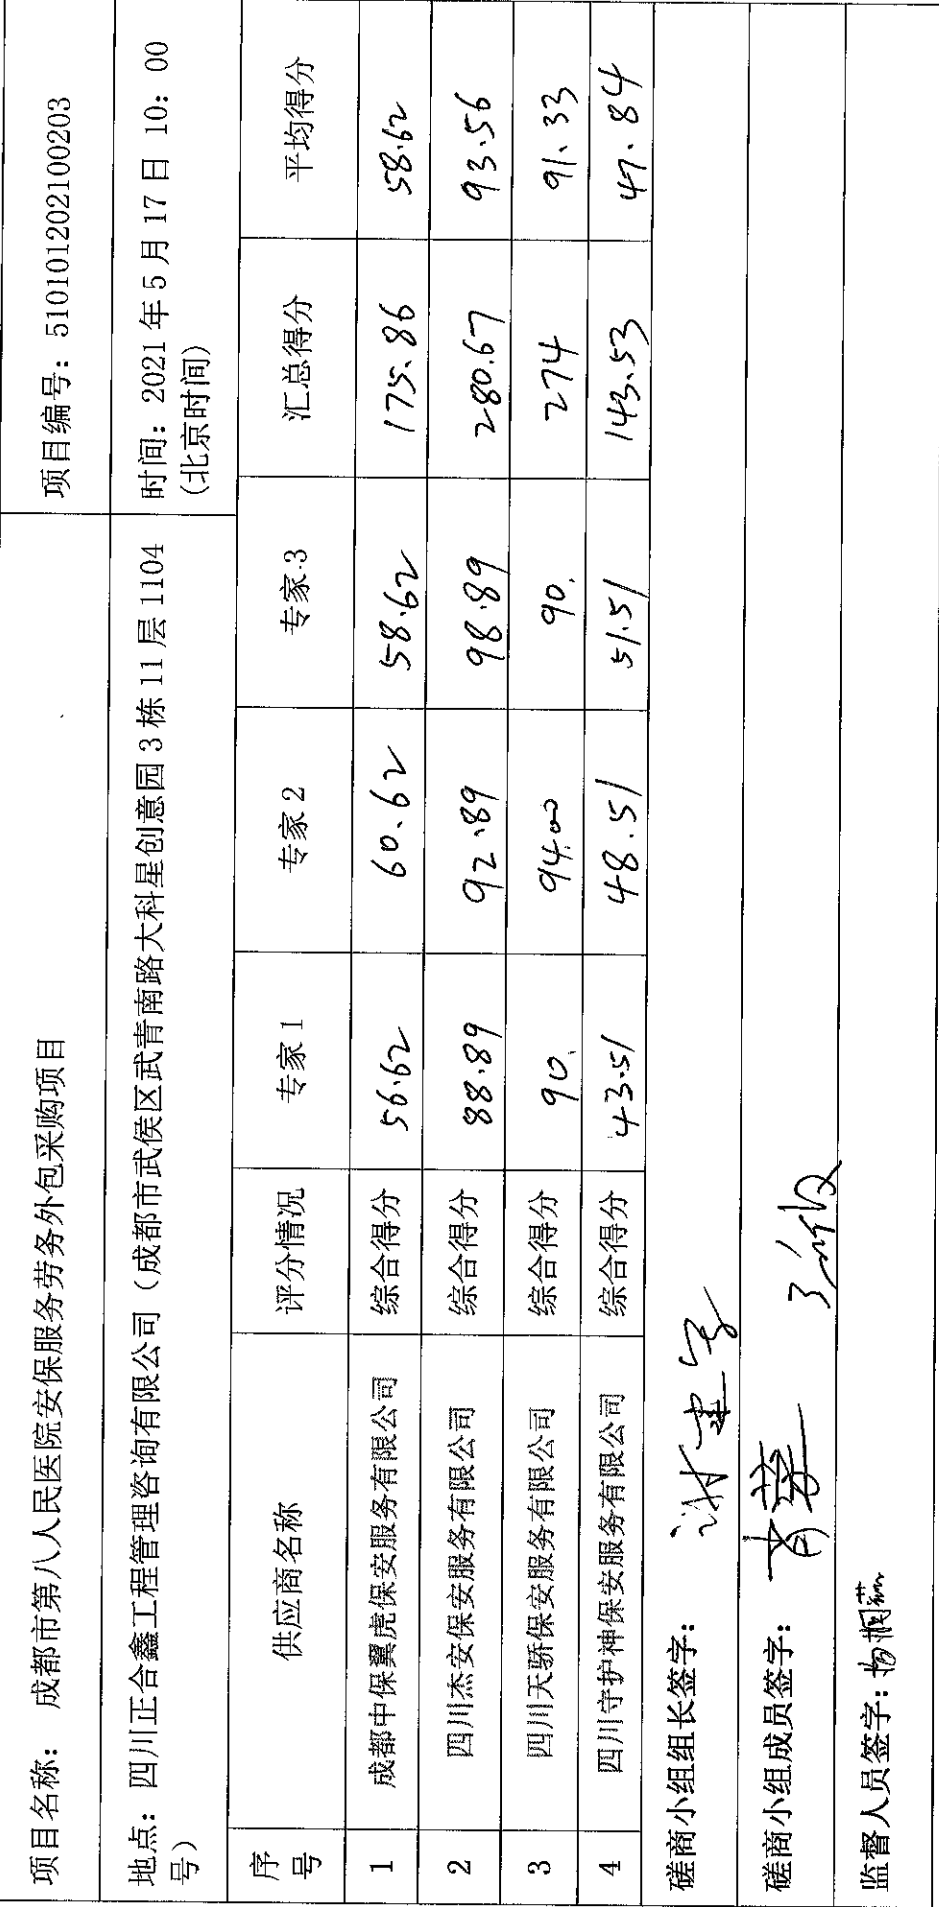 项目名称： 成都市第八人民医院安保服务劳务外包采购项目 项目编号：510101202100203
地点：四川正合鑫工程管理咨询有限公司（成都市武侯区武青南路大科星创意园 3 栋 11 层 1104 时间：2021 年 5 月 17 日 10：00
号） (北京时间)
序号 供应商名称 评分情况 专家 1 专家 2 专家 3 汇总得分 平均得分
1 成都中保翼虎保安服务有限公司 综合得分 56.62 60.62 58.62 175.86 58.62
2 四川杰安保安服务有限公司 综合得分 88.89 92.89 98.89 280.67 93.56
3 四川天骄保安服务有限公司 综合得分 90. 94.00 90. 274 91.33
4 四川守护神保安服务有限公司 综合得分 43.51 48.51 51.51 143.53 47.84
磋商小组组长签字：
磋商小组成员签字：
监督人员签字：